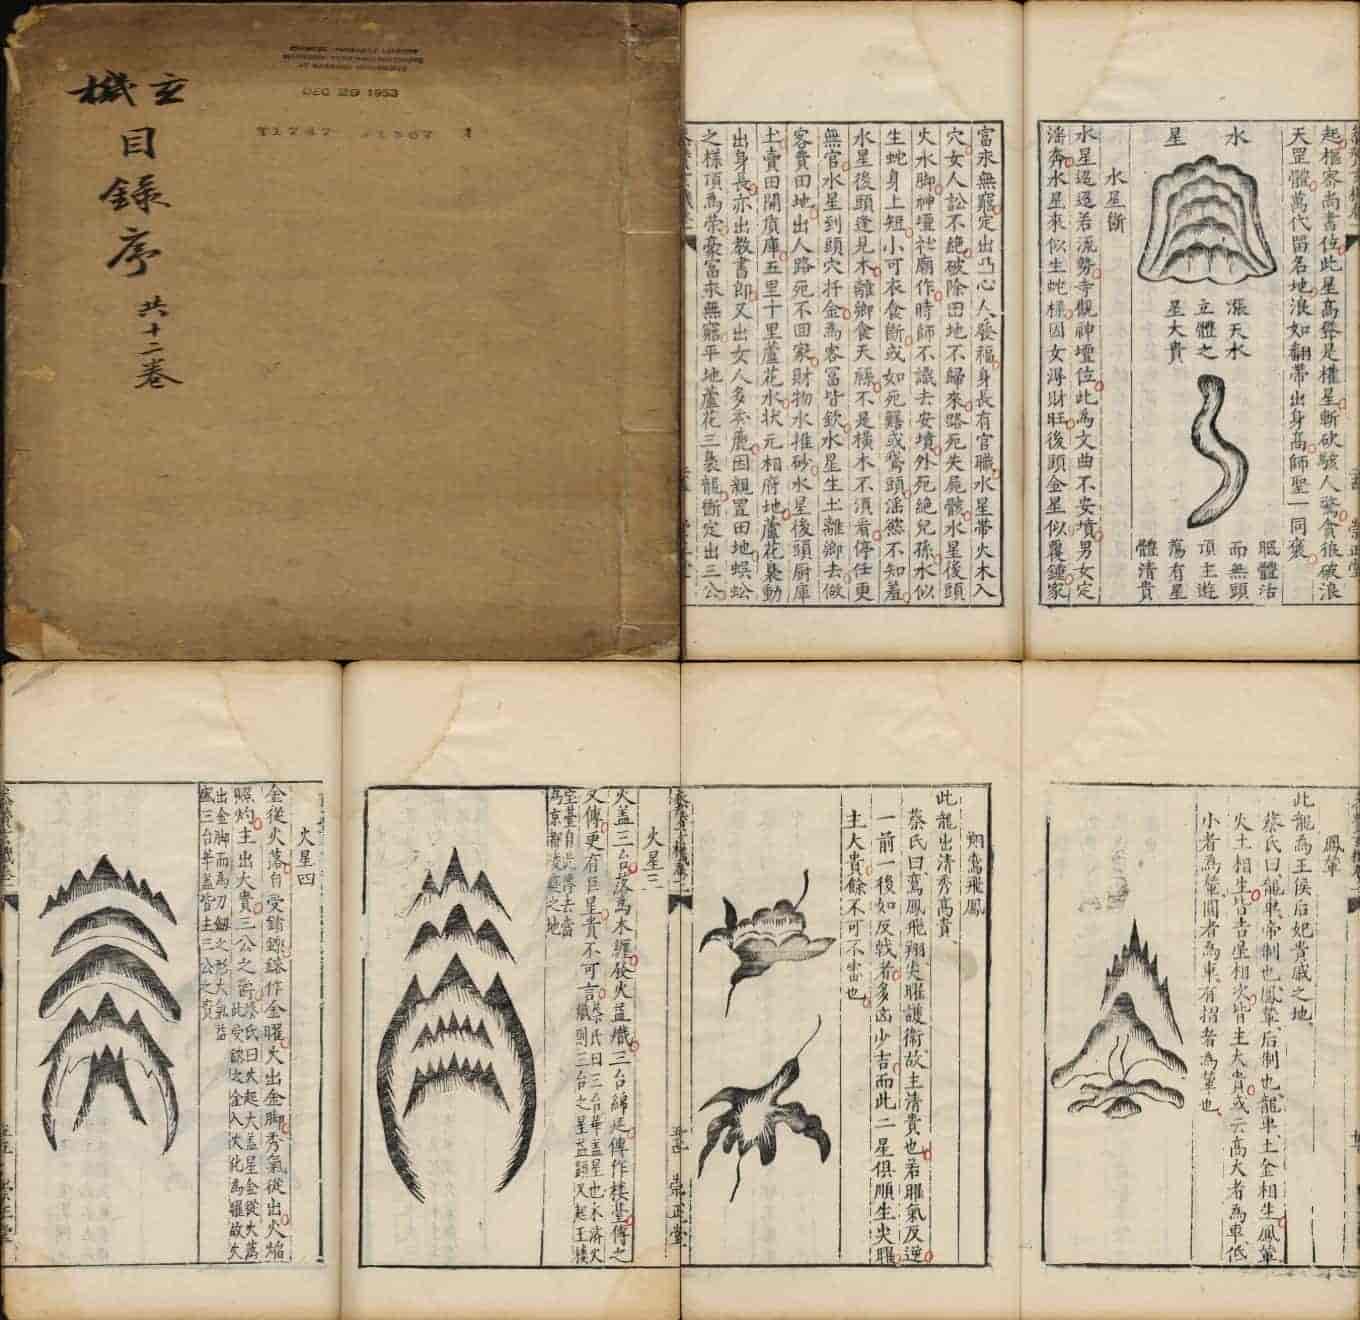 玄機
目錄序
共十二卷
CHINESE-JAPANESE LIBRARY
HARVARD-YENCHING INSTITUTE
AT HARVARD UNIVERSITY
DEC 29 1953
起樞密尚書位此星高聳是權星斬砍駭人驚貪狼破浪
天罡體萬代留名地浪如翻帶出身高師聖一同褒
水星
漲天水
立體之
星大貴
眠體活
而無頭
頂主遊
蕩有星
體清貴
水星斷
水星迢迢若流勢寺觀神壇位此為文曲不安墳男女定
淫奔水星來似生蛇樣因女得財旺後頭金星似覆鍾家
富來無窮定出凸心人發福身長有官職水星帶火木入
穴女人訟不絕破除田地不歸來路死失屍骸水星後頭
火水脚神壇社廟作時師不識去安墳外死絕兒孫水似
生蛇身上短小可衣食斷或如死鱔或鵞頭淫慾不知羞
水星後頭逢見木離鄉食天祿不是橫木不須看停仕更
無官水星到頭穴扦金為客冨皆欽水星生土離鄉去做
客賣田地出人路死不回家財物水推砂水星後頭厨庫
土賣田開廣庫五里十里蘆花水狀元相府地蘆花裊動
出身長亦出教書郎又出女人多奈麂因親置田地蜈蚣
之樣頂為榮豪冨來無窮平地蘆花三裊龍斷定出三公
鳳輦
此龍為王侯后妃貴戚之地
蔡氏曰龍車帝制也鳳輦后制也龍車土金相生鳳輦
火土相生皆吉星相次皆主大貴或云高大者為車低
小者為輦圓者為車有摺者為輦也
翔鸞飛鳳
此龍出清秀高貴
蔡氏曰鸞鳳飛翔尖曜護衛故主清貴也若曜氣反逆
一前一後如反戟者多凶少吉而此二星俱順生尖曜
主大貴餘不可不審也
崇正堂
火星三
火蓋三台落為木纏發火益熾三台綿延傳作樓臺傳之
又傳更有巨星貴不可言
火星四
金從火落自受銷鑠鎔作金曜火出金脚秀氣從出火焰
照灼主出大貴三公之爵
出金脚而為刀劔之形大氣益
盛三台華蓋皆主三公之貴